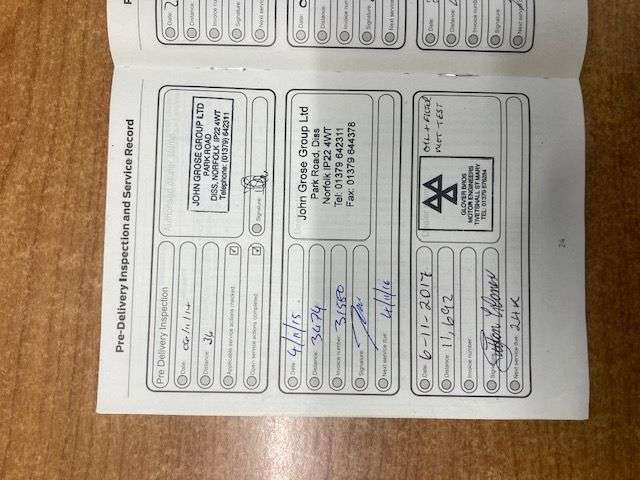 Pre-Delivery Inspection and Service Record
Pre Delivery Inspection
Date: 06/11/14
Distance: 36
Applicable service actions checked:
Open service actions completed:
JOHN GROSE GROUP LTD
PARK ROAD
DISS, NORFOLK IP22 4WT
Telephone: (01379) 642311
Signature:
Date: 4/11/15
Distance: 3474
Invoice number: 31550
Signature:
Next service due: 4/11/16
John Grose Group Ltd
Park Road, Diss
Norfolk IP22 4WT
Tel: 01379 642311
Fax: 01379 644378
Date: 6-11-2017
Distance: 11,692
Invoice number:
Signature:
Next service due: 24K
OIL + FILTER
MOT TEST
GLOVER BROS
MOTOR ENGINEERS
TIVETSHALL ST MARY
24
Date:
Distance:
Signature:
Date:
Distance:
Invoice number
Signature:
Next service
Date:
Distance:
Signature